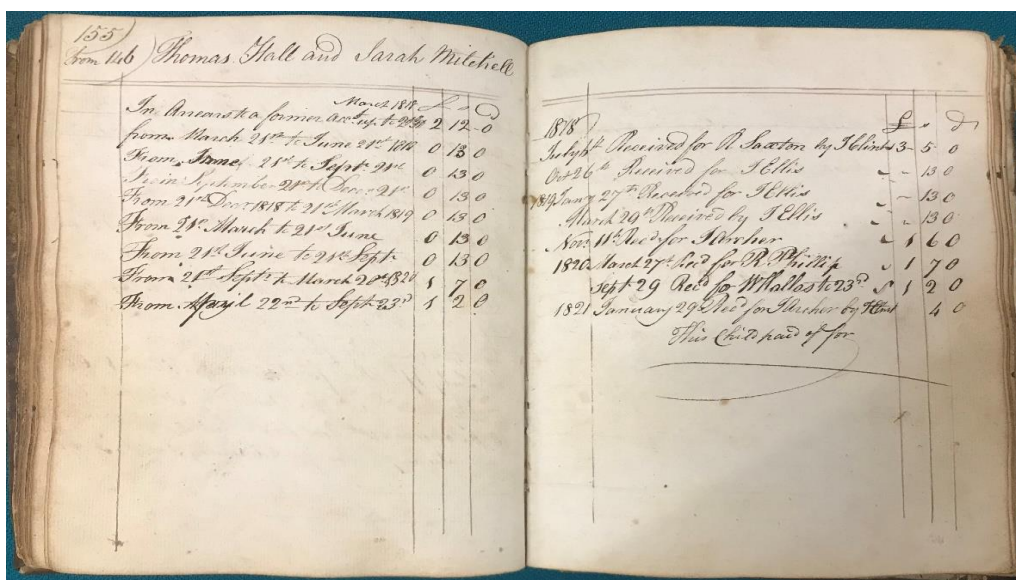 155
From 146) Thomas Hall and Sarah Mitchell
March 1818 £ s D
In Arrears to a former Acct up to 21st 2 12 0
from March 21st to June 21st 1818 0 13 0
From June 21st to Septr 21st 0 13 0
From September 21st to Decr 21st 0 13 0
From 21st Decr 1818 to 21st March 1819 0 13 0
From 21st March to 21st June 0 13 0
From 21st June to 21st Sept 0 13 0
From 21st Septr to March 20th 1820 1 7 0
From April 22nd to Sept 23d 1 2 0
1818 £ s D
July 6th Received for R Saxton by 3 5 0
Oct 26th Received for J Ellis 13 0
1819 Jany 27th Received for J Ellis 13 0
March 29th Received by J Ellis 13 0
Nov. 11th Recd for J Archer 1 6 0
1820 March 27th Recd for R Phillip 1 7 0
Sept 29 Recd for W Hallas to 23d 1 2 0
1821 January 29th Recd for J Archer by 4 0
This Child paid of for